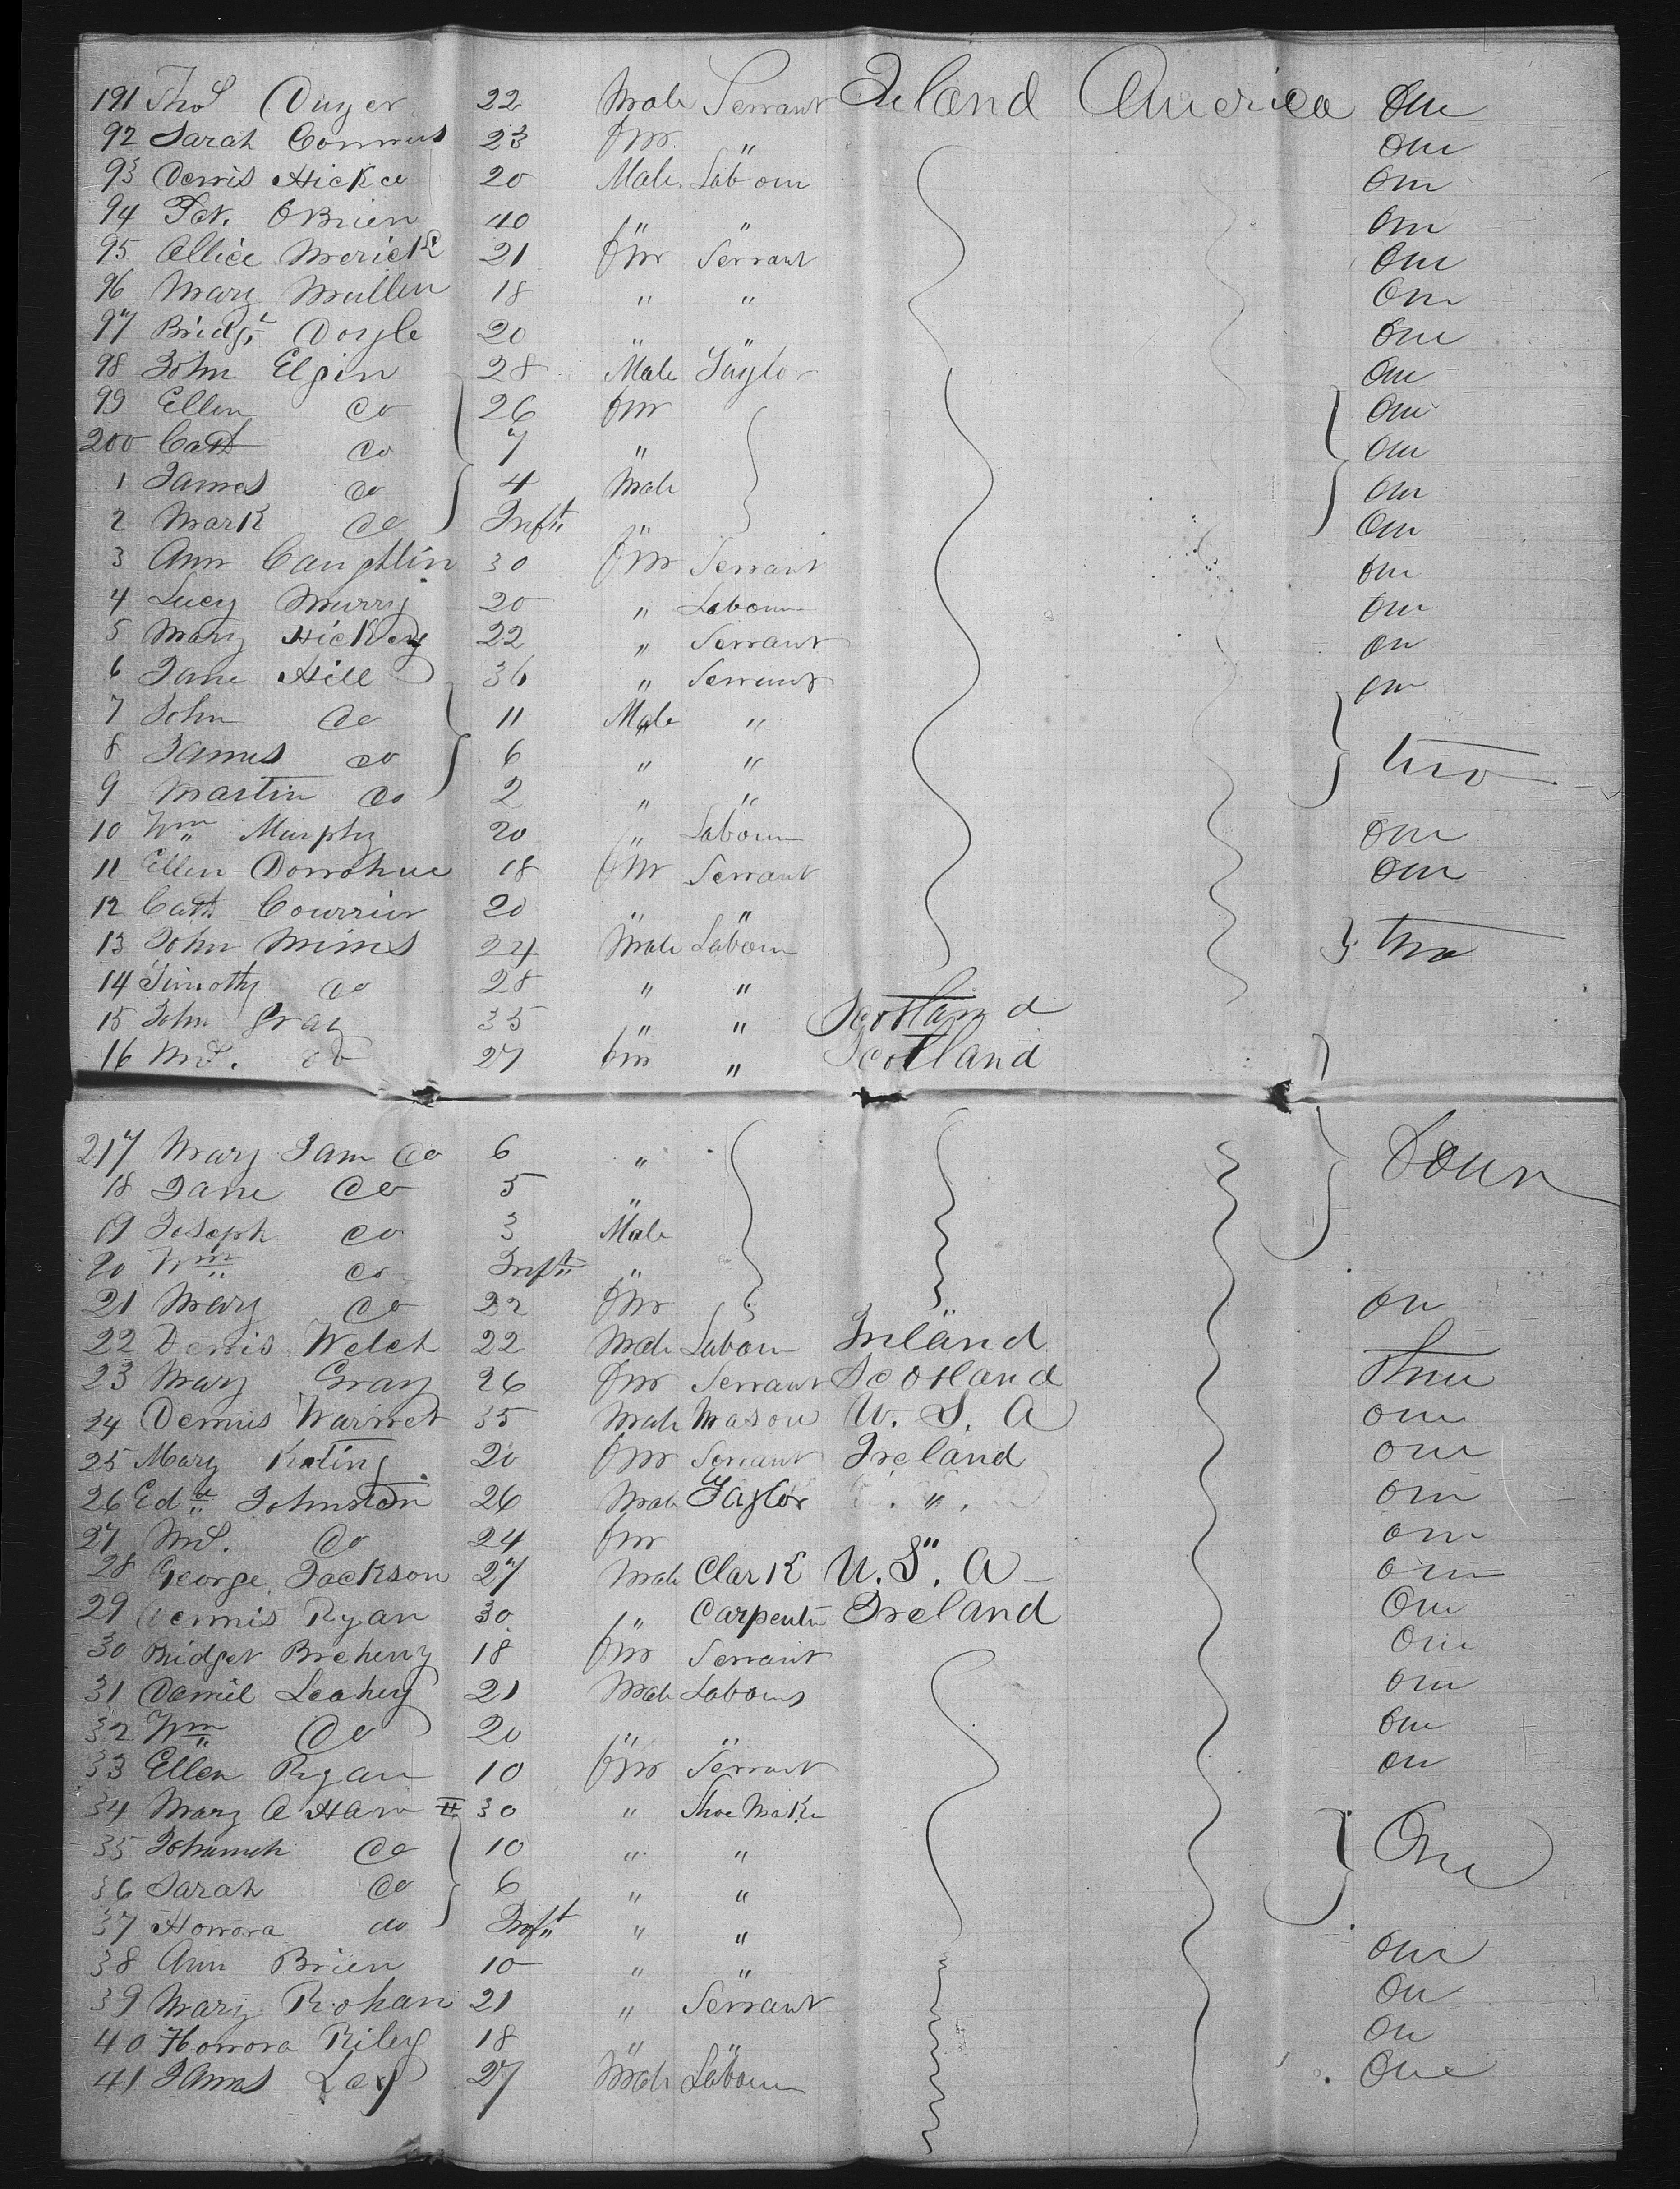 191 Thos Dwyer 22 Male Servant Ireland America One
92 Sarah Connors 23 Fm " One
93 Dennis Hickee 20 Male Labour One
94 Pat. OBrien 40 " " One
95 Allice Merick 21 Fm Servant One
96 Mary Mullen 18 " " One
97 Bridgt Doyle 20 " " One
98 John Elgin 28 Male Taylor One
99 Ellen do 26 Fm One
200 Cath do 7 " One
1 James do 4 Male One
2 Mark do Inft " One
3 Ann Caughlin 30 Fm Servant One
4 Lucy Murry 20 " Labour One
5 Mary Hickey 22 " Servant One
6 Jane Hill 36 " Servant One
7 John do 11 Male "
8 James do 6 " " two
9 Martin do 2 " "
10 Wm Murphy 20 " Labour One
11 Ellen Donohue 18 Fm Servant One
12 Cath Courrier 20 " "
13 John Mims 24 Male Labour two
14 Timothy do 28 " "
15 John Gray 35 " " Scotland
16 Ms. do 27 Fm " Scotland
217 Mary Jam do 6 " Four
18 Jane do 5 "
19 Joseph do 3 Male
20 Wm do Inft "
21 Mary do 22 Fm One
22 Dennis Welch 22 Male Labour Ireland
23 Mary Gray 26 Fm Servant Scotland Three
24 Dennis Warner 35 Male Mason U. S. A One
25 Mary Kating 20 Fm Servant Ireland One
26 Edd Johnston 26 Male Taylor " One
27 Ms. do 24 Fm " One
28 George Jackson 27 Male Clark U. S. A One
29 Dennis Ryan 30 " Carpenter Ireland One
30 Bridget Breheny 18 Fm Servant One
31 Daniel Leahey 21 Male Labour One
32 Wm do 20 " " One
33 Ellen Ryan 10 Fm Servant One
34 Mary A Han 30 " Shoe Maker
35 Johannah do 10 " " One
36 Sarah do 6 " "
37 Honora do Inft " "
38 Ann Brien 10 " " One
39 Mary Rohan 21 " Servant One
40 Honora Riley 18 " " One
41 James Lay 27 Male Labour One